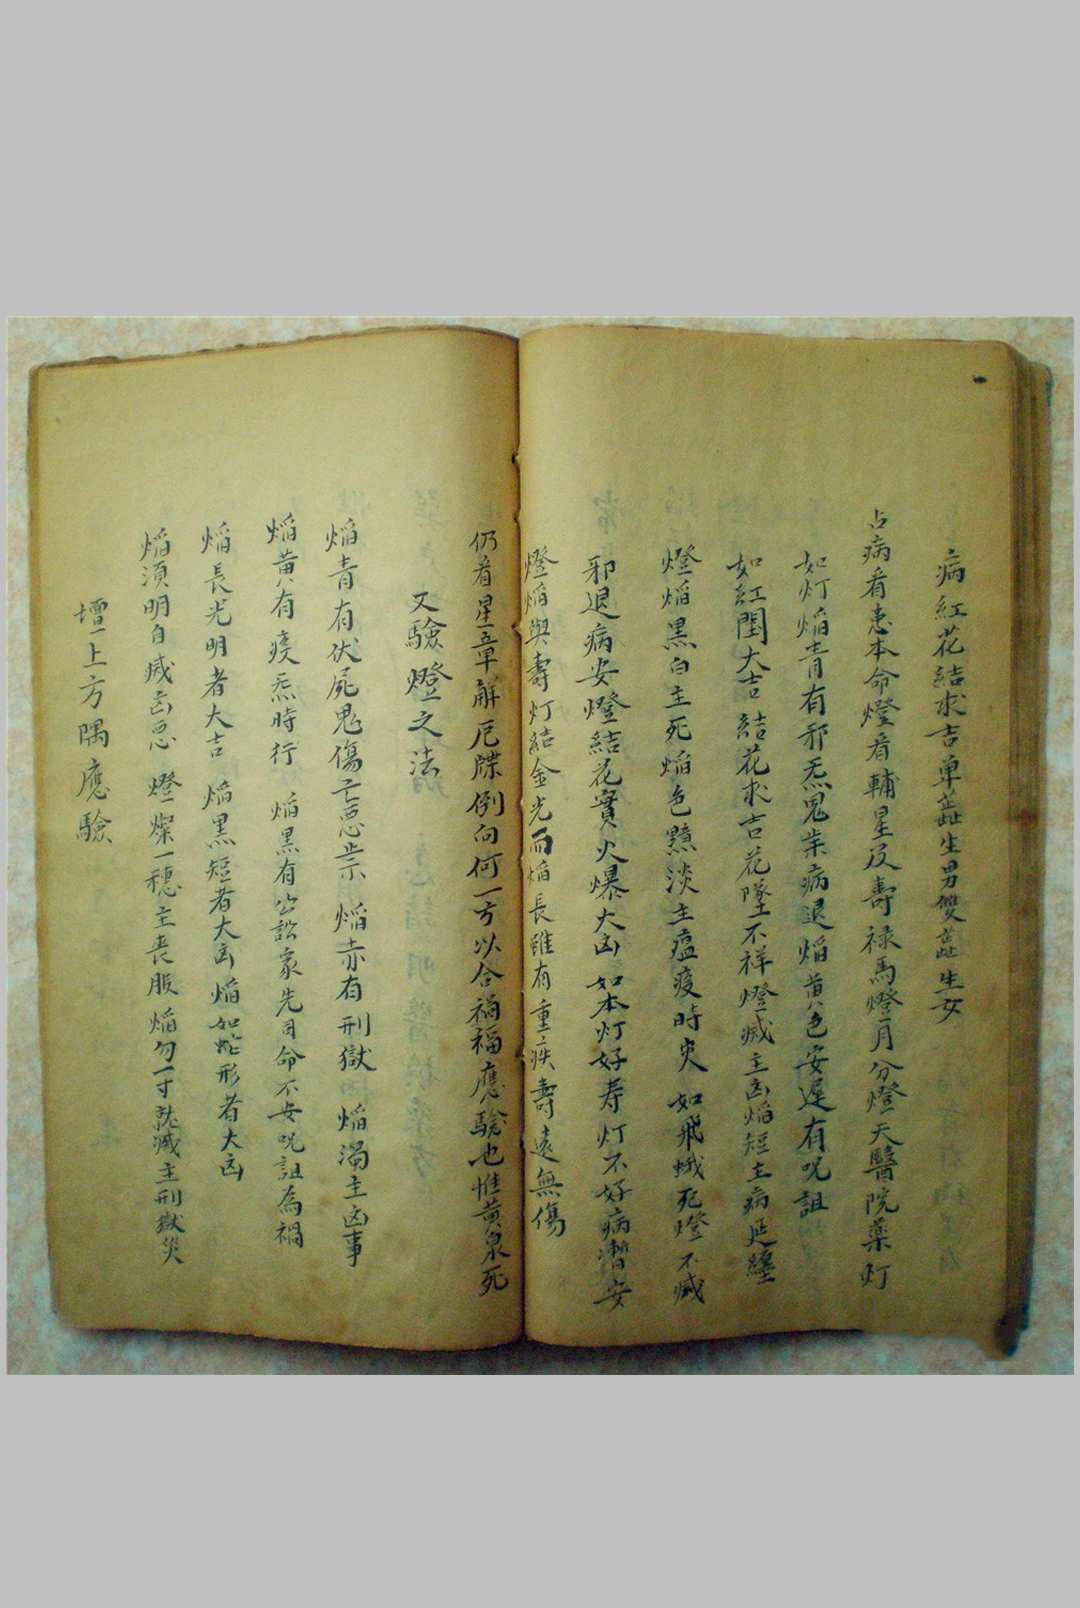 病紅花結求吉单蕊生男雙蕊生女
占病看患本命燈看輔星及壽禄馬燈月分燈天醫院藥灯
如灯焰青有邪炁鬼祟病退焰黄色安遲有呪詛
如紅圍大吉結花求吉花墜不祥燈滅主凶焰短主病延纏
燈焰黑白主死焰色黯淡主瘟疫時灾如飛蛾死燈不滅
邪退病安燈結花實火爆大凶如本灯好寿灯不好病漸安
燈焰與壽灯結金光而焰長雖有重疾壽遠無傷
仍看星章解厄牒倒向何一方以合禍福應驗也惟黄泉死
又驗燈之法
焰青有伏屍鬼傷亡惡祟焰赤有刑獄焰濁主凶事
焰黄有疫炁時行焰黒有公訟家先司命不安呪詛為禍
焰長光明者大吉焰黒短者大凶焰如蛇形者大凶
焰須明自滅凶惡燈燦一穗主丧服焰勿一寸就滅主刑獄災
壇上方隅應驗